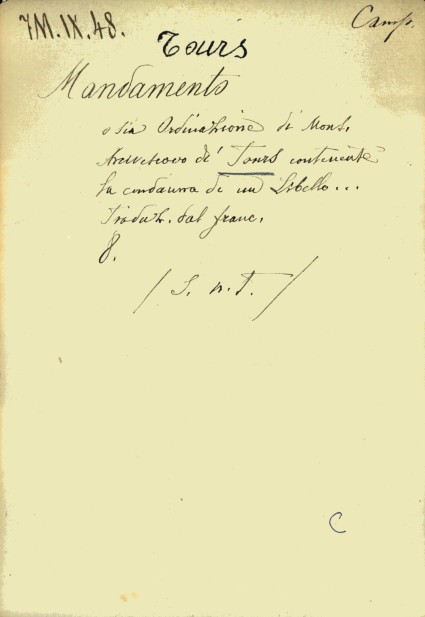 7M.IX.48.
Camp.
Tours
Mandamento
o sia Ordinazione di Mons.
Arcivescovo di Tours contenente
la condanna di un Libello...
Traduz. dal franc.
8.
/ S. n. T. /
C